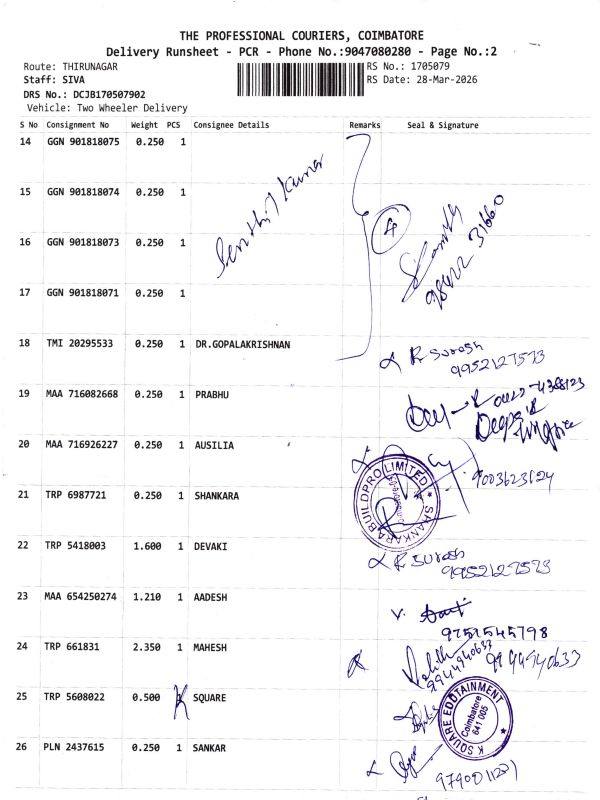 THE PROFESSIONAL COURIERS, COIMBATORE
Delivery Runsheet - PCR - Phone No.:9047080280 - Page No.:2
Route: THIRUNAGAR
Staff: SIVA
DRS No.: DCJB170507902
Vehicle: Two Wheeler Delivery
RS No.: 1705079
RS Date: 28-Mar-2026
S No Consignment No Weight PCS Consignee Details Remarks Seal & Signature
14 GGN 901818075 0.250 1
15 GGN 901818074 0.250 1
Senthil Kumar
4
16 GGN 901818073 0.250 1
98422 31660
17 GGN 901818071 0.250 1
18 TMI 20295533 0.250 1 DR.GOPALAKRISHNAN
R Suresh
9952127573
19 MAA 716082668 0.250 1 PRABHU
20 MAA 716926227 0.250 1 AUSILIA
9003623624
21 TRP 6987721 0.250 1 SHANKARA
SHANKARA BUILDPRO LIMITED
22 TRP 5418003 1.600 1 DEVAKI
R Suresh
9952127573
23 MAA 654250274 1.210 1 AADESH
9751545798
24 TRP 661831 2.350 1 MAHESH
9944940633
9944940633
25 TRP 5608022 0.500 K SQUARE
K SQUARE EDOTAINMENT
Coimbatore
641 005
26 PLN 2437615 0.250 1 SANKAR